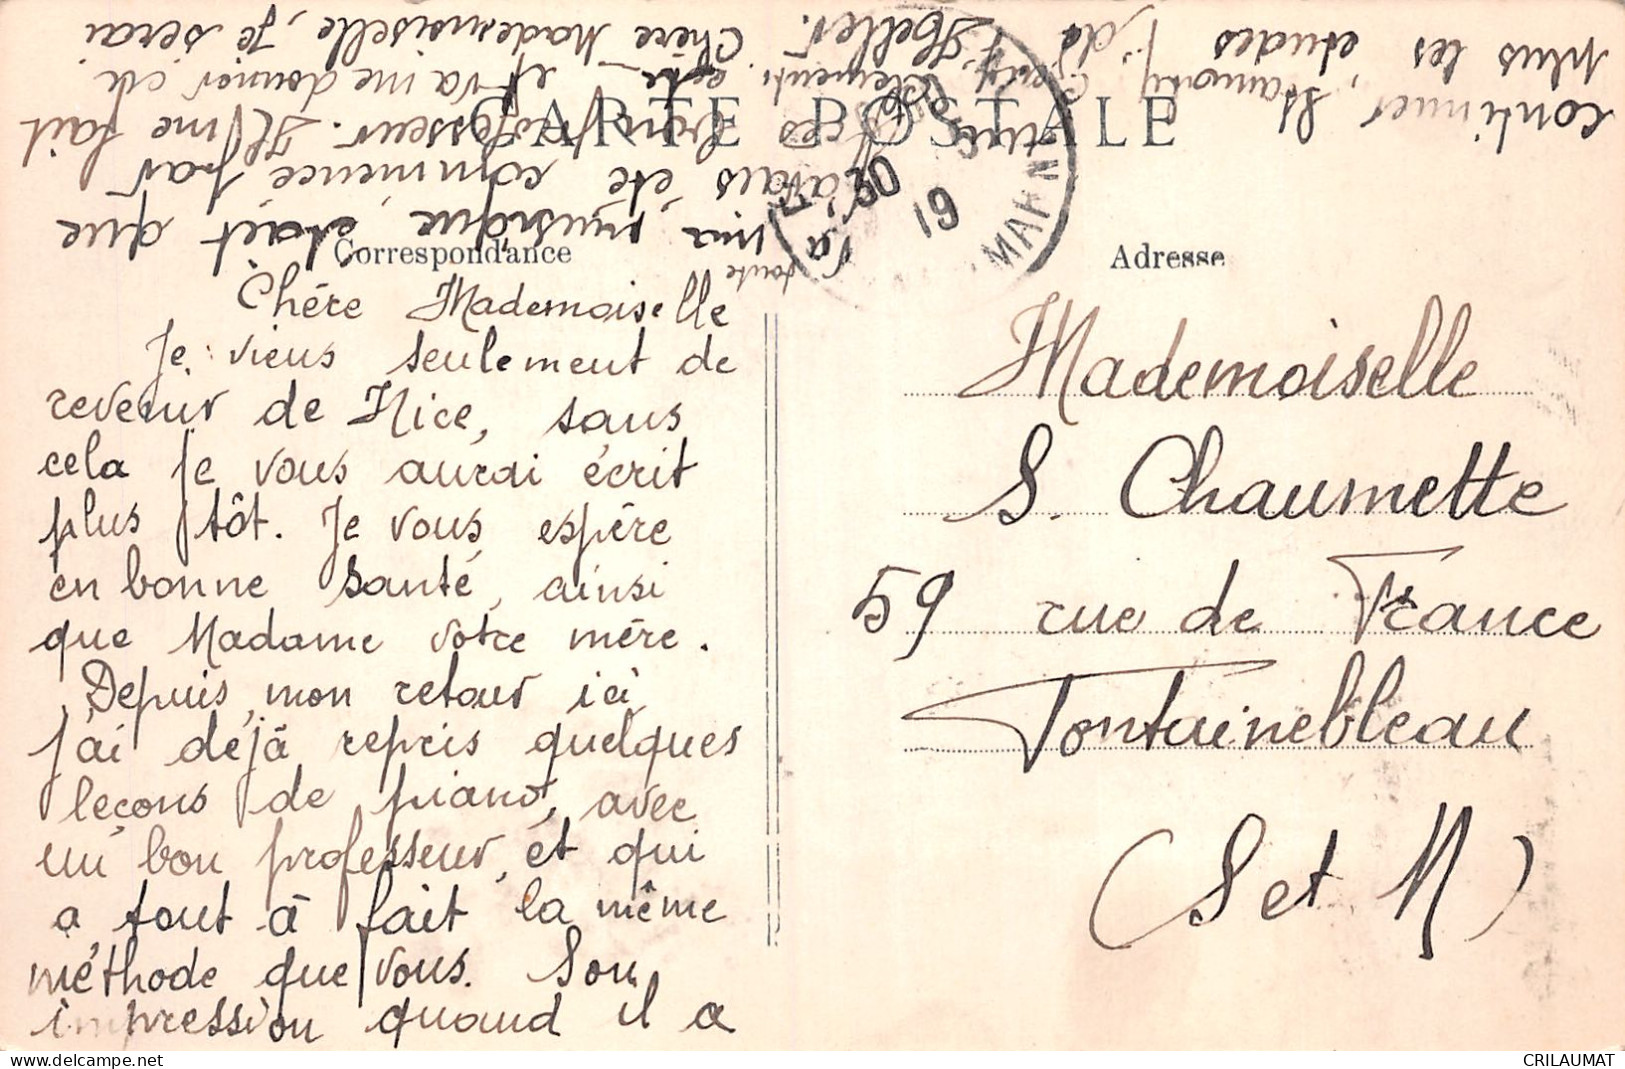 CARTE POSTALE
Correspondance
Adresse
Chére Mademoiselle
Je viens seulement de
revenir de Nice, sans
cela je vous aurai écrit
plus tôt. Je vous espére
en bonne santé, ainsi
que Madame votre mére.
Depuis mon retour ici
j'ai déjà repris quelques
leçons de piano, avec
un bon professeur, et qui
a tout à fait la même
méthode que vous. Son
impression quand il a
vu ma musique, etait que
toute
j'avais été commencé par
une bons professeur. Il me fait
continuer et va me donner cet
plus les études de Heller. Chère Mademoiselle, je serai
30
19
MARN
Mademoiselle
S. Chaumette
59 rue de France
Fontainebleau
(S et M)
CRILAUMAT